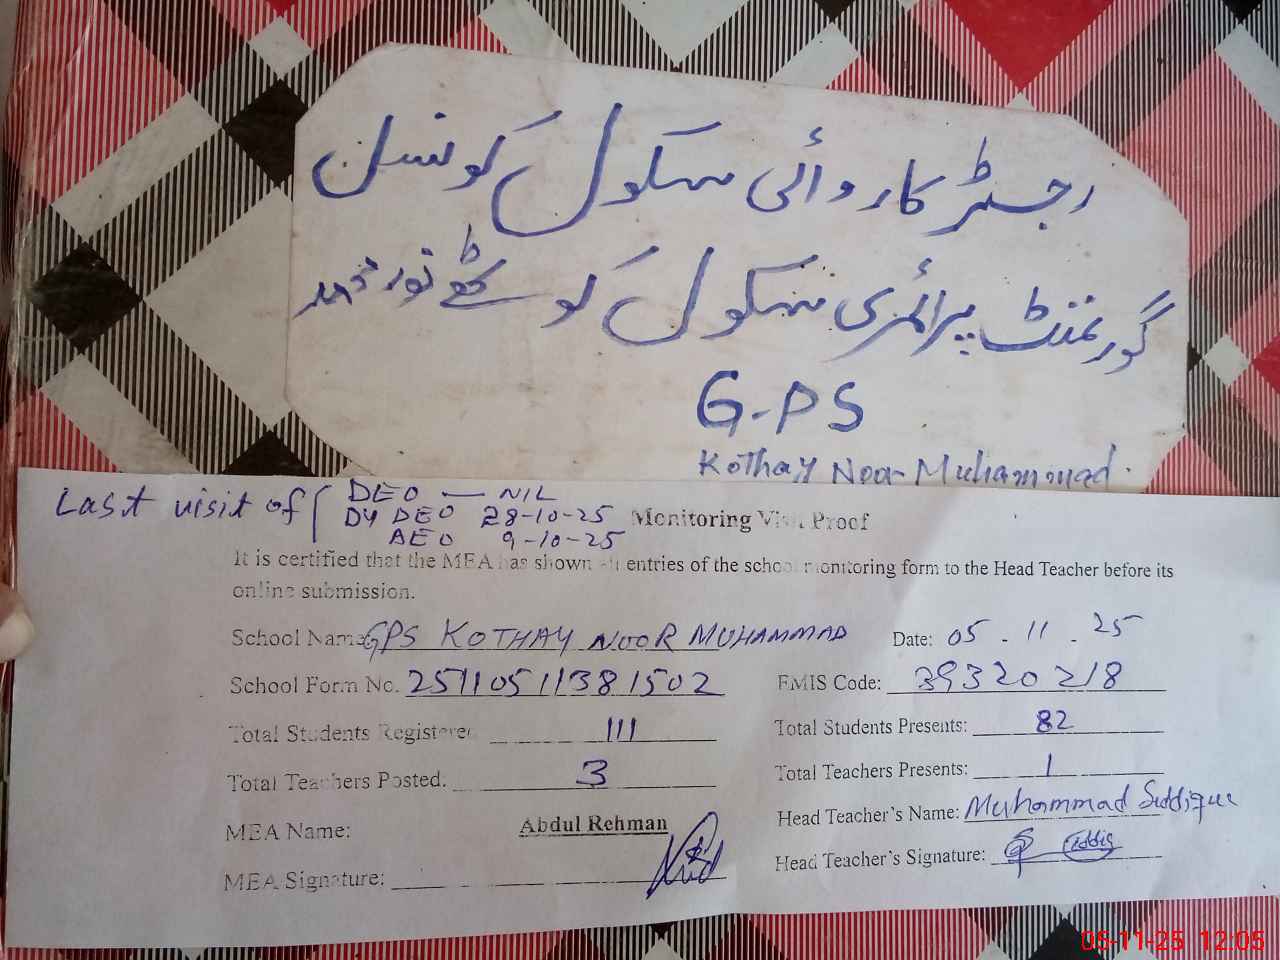 رجسٹر کاروائی سکول کونسل
گورنمنٹ پرائمری سکول کوٹھے نور محمد
G-PS
Kothay Noor Muhammad.
Last visit of
DEO — NIL
DY DEO 28-10-25
AEO 9-10-25
Monitoring Visit Proof
It is certified that the MEA has shown all entries of the school monitoring form to the Head Teacher before its
online submission.
School Name: GPS KOTHAY NOOR MUHAMMAD Date: 05-11-25
School Form No. 25110511381502 EMIS Code: 39320218
Total Students Registered 111 Total Students Presents: 82
Total Teachers Posted. 3 Total Teachers Presents: 1
MEA Name: Abdul Rehman Head Teacher's Name: Muhammad Siddique
MEA Signature: Head Teacher's Signature:
05-11-25 12:05